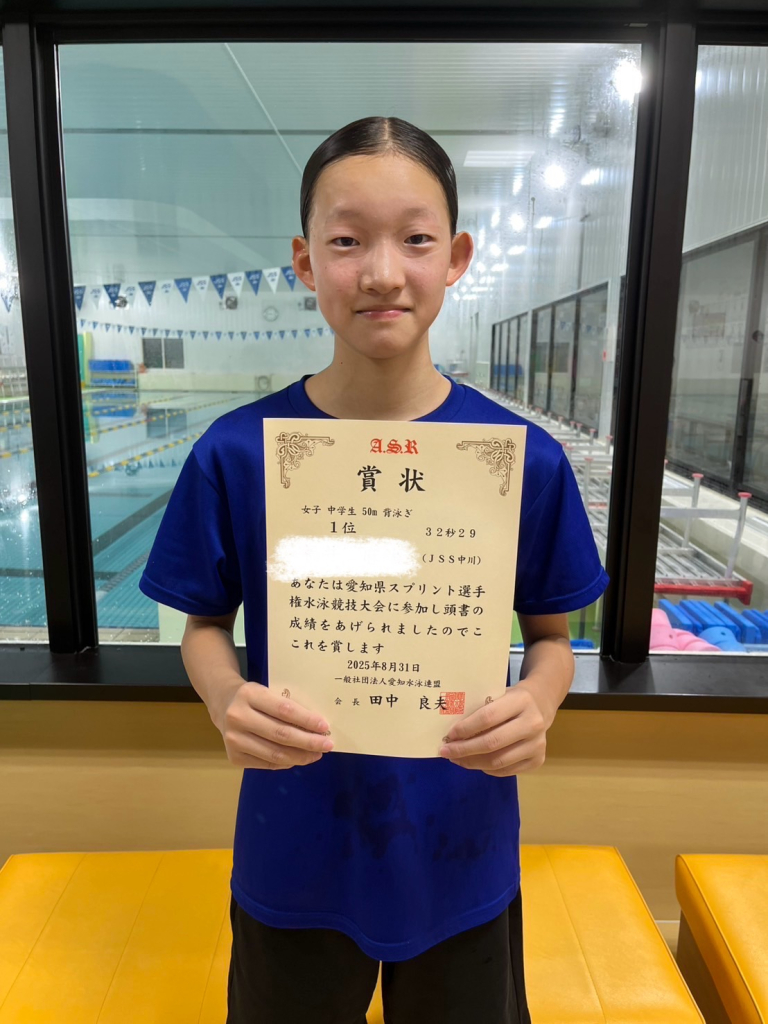 A.S.R
賞状
女子 中学生 50m 背泳ぎ
1位 32秒29
(JSS中川)
あなたは愛知県スプリント選手
権水泳競技大会に参加し頭書の
成績をあげられましたのでこ
これを賞します
2025年8月31日
一般社団法人愛知水泳連盟
会長 田中 良夫